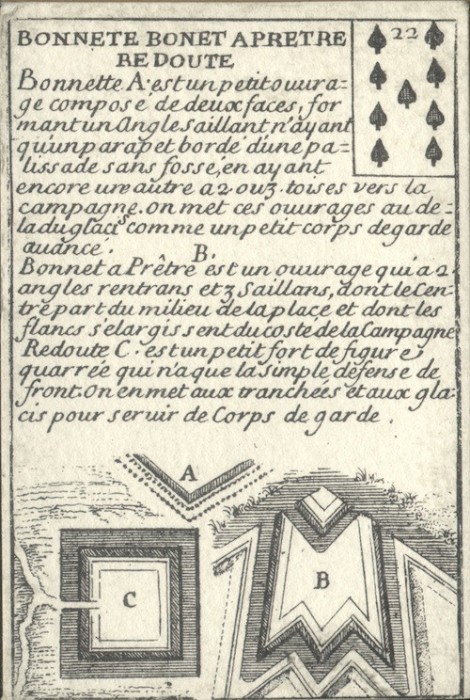 BONNETE BONET A PRETRE
22
REDOUTE
Bonnette A. est un petit ouura=
ge composé de deux faces, for
mant un Angle Saillant n'ayant
qu'un parapet bordé d'une pa=
lissade sans fossé, en ayant
encore une autre a 2 ou 3. toises vers la
campagne. on met ces ouurages au de=
la du glacis comme un petit corps de garde
auancé.
B.
Bonnet a Prêtre est un ouurage qui a 2
angles rentrans et 3 Saillans, dont le Cen=
tre part du milieu de la place et dont les
flancs s'elargissent du costé de la Campagne
Redoute C. est un petit fort de figure
quarrée qui n'a que la simple défense de
front. On en met aux tranchées et aux gla=
cis pour seruir de Corps de garde.
A
B
C